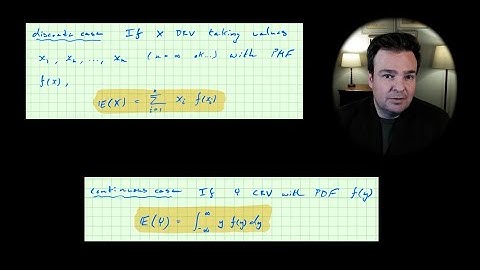 discrete case If X DRV taking values
x₁, x₂, ..., xₙ (n=∞ ok...) with PMF
f(x),
𝔼(X) = ∑ᵢ₌₁ⁿ xᵢ f(xᵢ)
continuous case If Y CRV with PDF f(y)
𝔼(Y) = ∫₋∞^∞ y f(y) dy